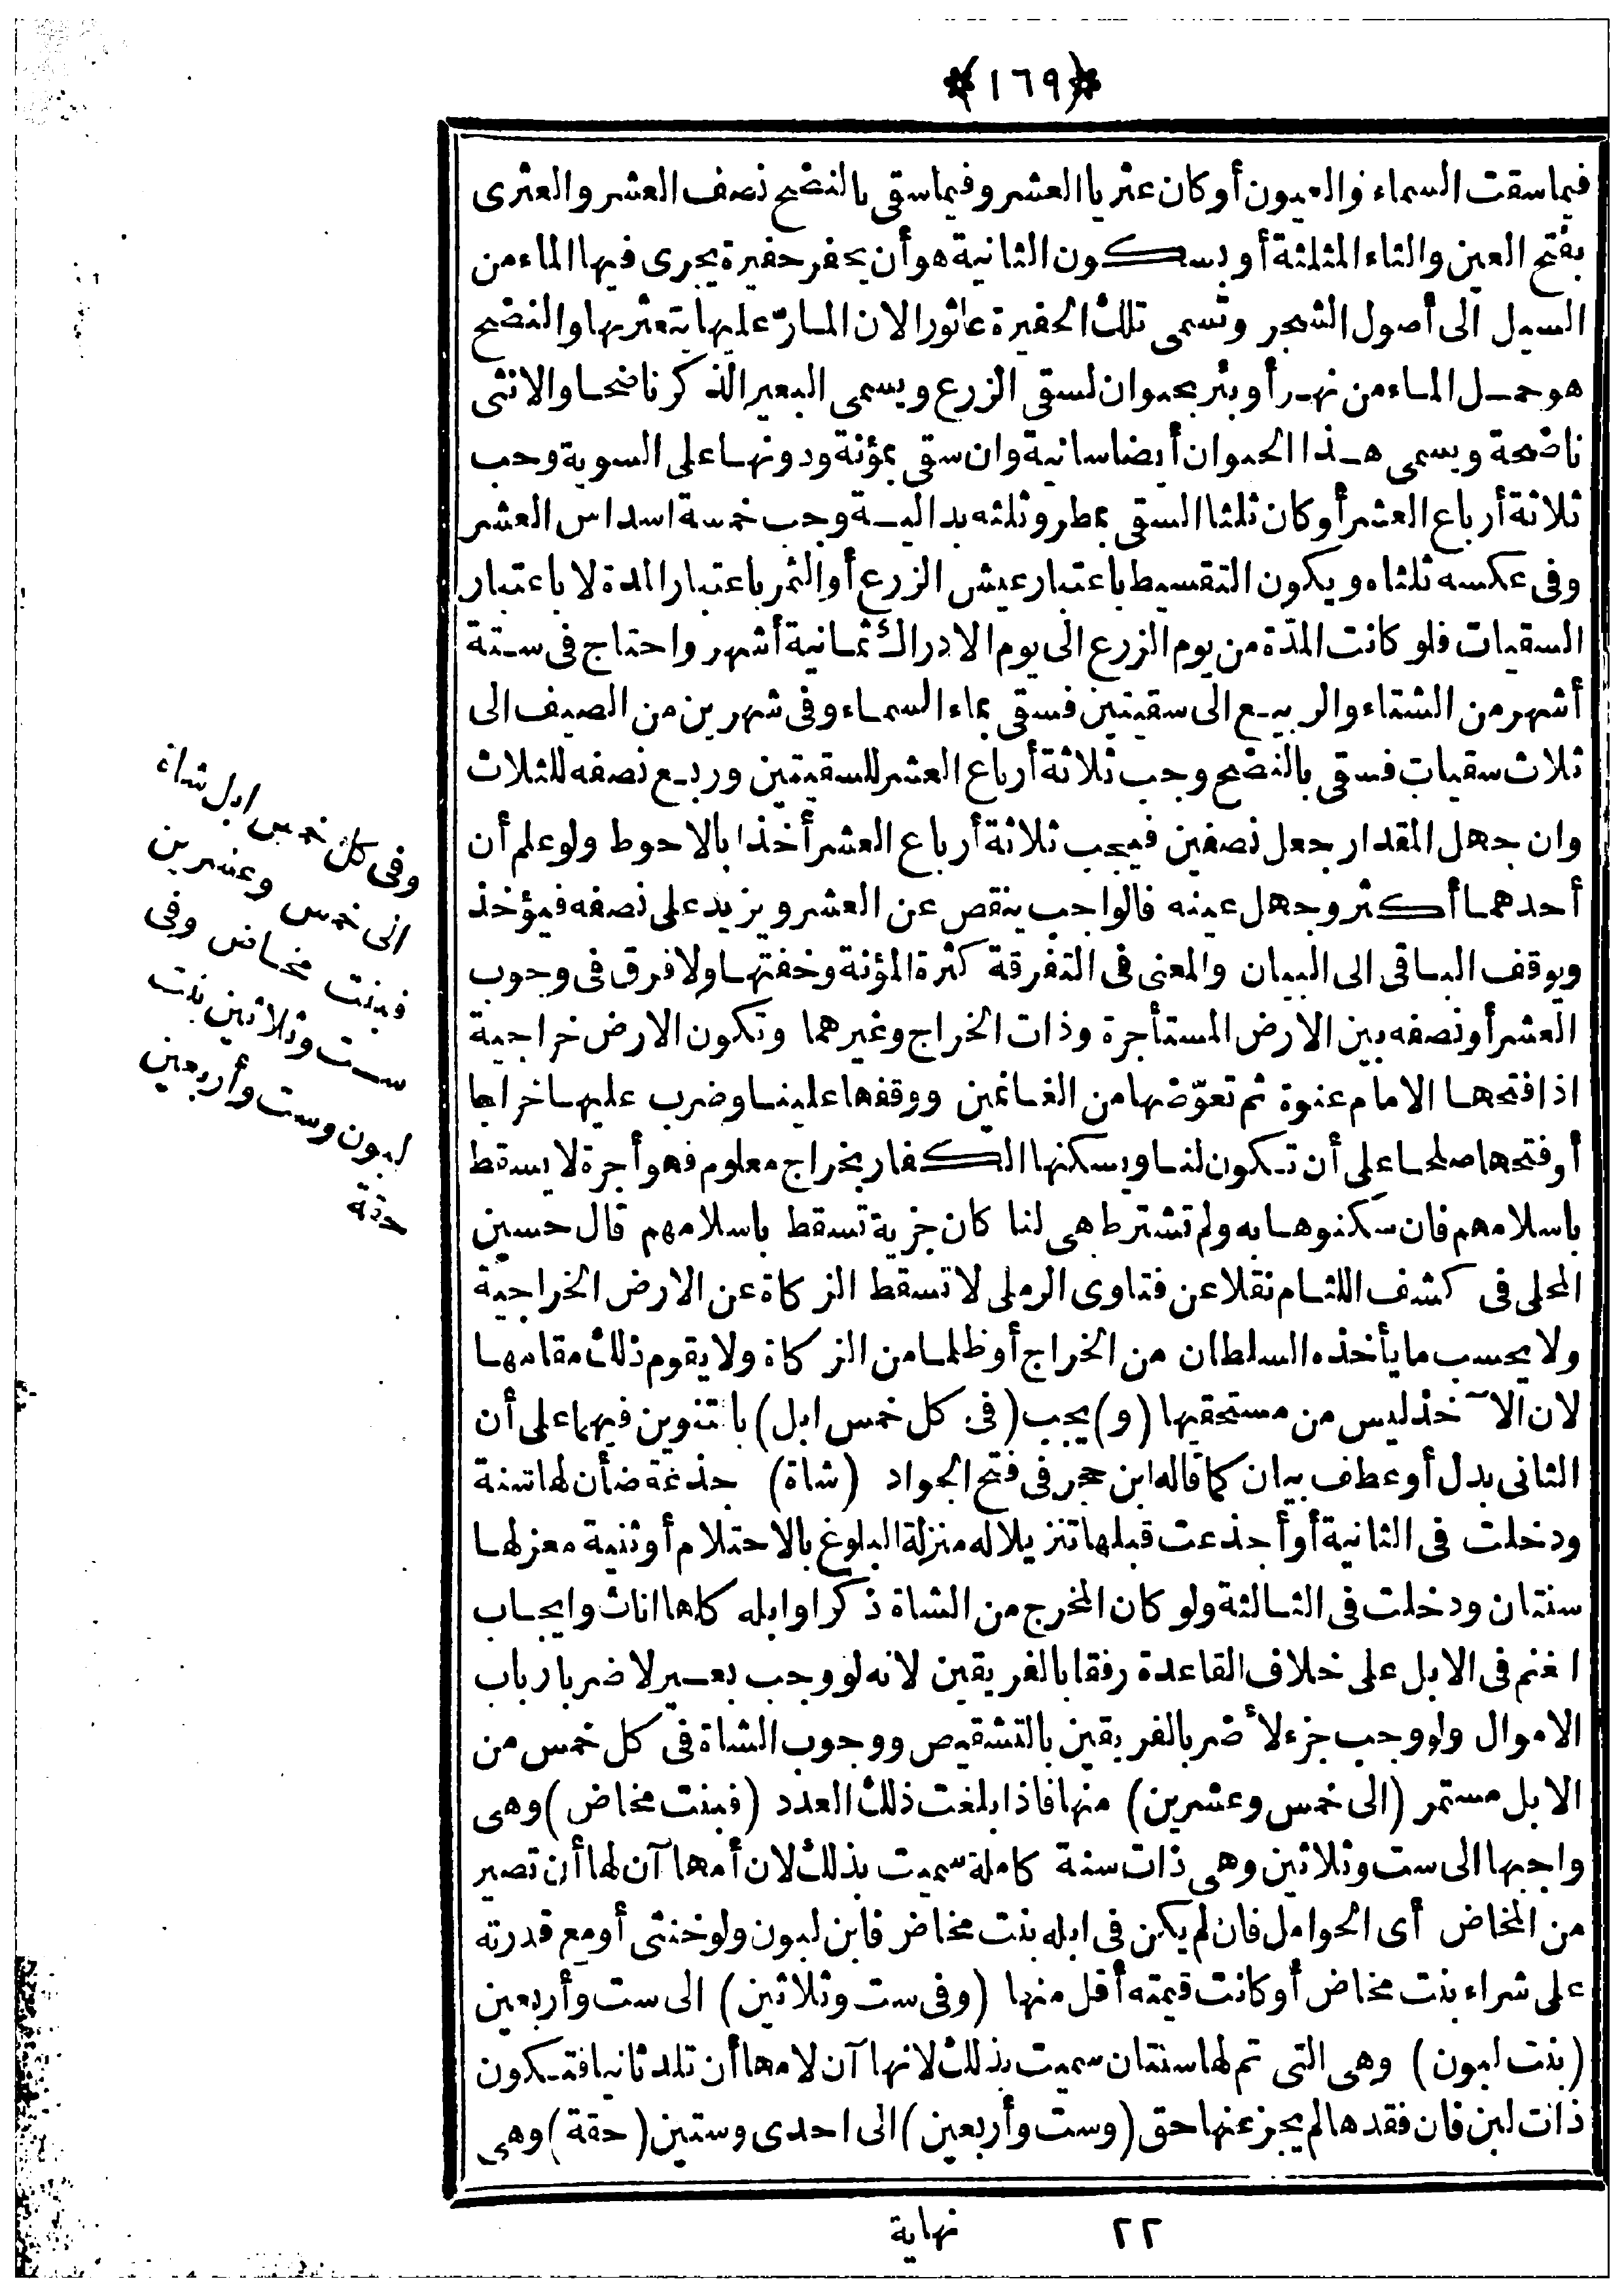 ﴿١٦٩﴾
فيما سقت السماء والعيون أو كان عثريا العشر وفيما سقى بالنضح نصف العشر والعثرى
بفتح العين والثاء المثلثة أو بسكون الثانية هو أن يحفر حفيرة يجرى فيها الماء من
السيل الى أصول الشجر وتسمى تلك الحفيرة عاثورا لان المارّ عليها يتعثر بها والنضح
هو حمل الماء من نهر أو بئر بحيوان لسقى الزرع ويسمى البعير الذكر ناضحا والانثى
ناضحة ويسمى هذا الحيوان أيضا سانية وان سقى بمؤنة ودونها على السوية وجب
ثلاثة أرباع العشر أو كان ثلثا السقى بمطر وثلثه بدالية وجب خمسة اسداس العشر
وفى عكسه ثلثاه ويكون التقسيط باعتبار عيش الزرع أو الثمر باعتبار المدة لا باعتبار
السقيات فلو كانت المدّة من يوم الزرع الى يوم الادراك ثمانية أشهر واحتاج فى ستة
أشهر من الشتاء والربيع الى سقيتين فسقى بماء السماء وفى شهرين من الصيف الى
ثلاث سقيات فسقى بالنضح وجب ثلاثة أرباع العشر للسقيتين وربع نصفه للثلاث
وان جهل المقدار جعل نصفين فيجب ثلاثة أرباع العشر أخذا بالاحوط ولو علم أن
أحدهما أكثر وجهل عينه فالواجب ينقص عن العشر ويزيد على نصفه فيؤخذ
ويوقف الباقى الى البيان والمعنى فى التفرقة كثرة المؤنة وخفتها ولا فرق فى وجوب
العشر أو نصفه بين الارض المستأجرة وذات الخراج وغيرهما وتكون الارض خراجية
اذا فتحها الامام عنوة ثم تعوّضها من الغانمين ووقفها علينا وضرب عليها خراجا
أو فتحها صلحا على أن تكون لنا ويسكنها الكفار بخراج معلوم فهو أجرة لا يسقط
باسلامهم فان سكنوها به ولم تشترط هى لنا كان جزية تسقط باسلامهم قال حسين
المحلى فى كشف اللثام نقلا عن فتاوى الرملى لا تسقط الزكاة عن الارض الخراجية
ولا يحسب ما يأخذه السلطان من الخراج أو ظلما من الزكاة ولا يقوم ذلك مقامها
لان الآخذ ليس من مستحقيها (و) يجب (فى كل خمس ابل) بالتنوين فيهما على أن
الثانى بدل أو عطف بيان كما قاله ابن حجر فى فتح الجواد (شاة) جذعة ضأن لها سنة
ودخلت فى الثانية أو أجذعت قبلها تنزيلا له منزلة البلوغ بالاحتلام أو ثنية معز لها
سنتان ودخلت فى الثالثة ولو كان المخرج من الشاة ذكرا وابله كلها اناث وايجاب
الغنم فى الابل على خلاف القاعدة رفقا بالفريقين لانه لو وجب بعير لاضر بارباب
الاموال ولو وجب جزء لأضر بالفريقين بالتشقيص ووجوب الشاة فى كل خمس من
الابل مستمر (الى خمس وعشرين) منها فاذا بلغت ذلك العدد (فبنت مخاض) وهى
واجبها الى ست وثلاثين وهى ذات سنة كاملة سميت بذلك لان أمها آن لها أن تصير
من المخاض أى الحوامل فان لم يكن فى ابله بنت مخاض فابن لبون ولو خنثى أو مع قدرته
على شراء بنت مخاض أو كانت قيمته أقل منها (وفى ست وثلاثين) الى ست وأربعين
(بنت لبون) وهى التى تم لها سنتان سميت بذلك لانها آن لامها أن تلد ثانيا فتكون
ذات لبن فان فقدها لم يجز عنها حق (وست وأربعين) الى احدى وستين (حقة) وهى
وفى كل خمس ابل شاة
الى خمس وعشرين
فبنت مخاض وفى
ست وثلاثين بنت
لبون وست وأربعين
حقة
٢٢ نهاية